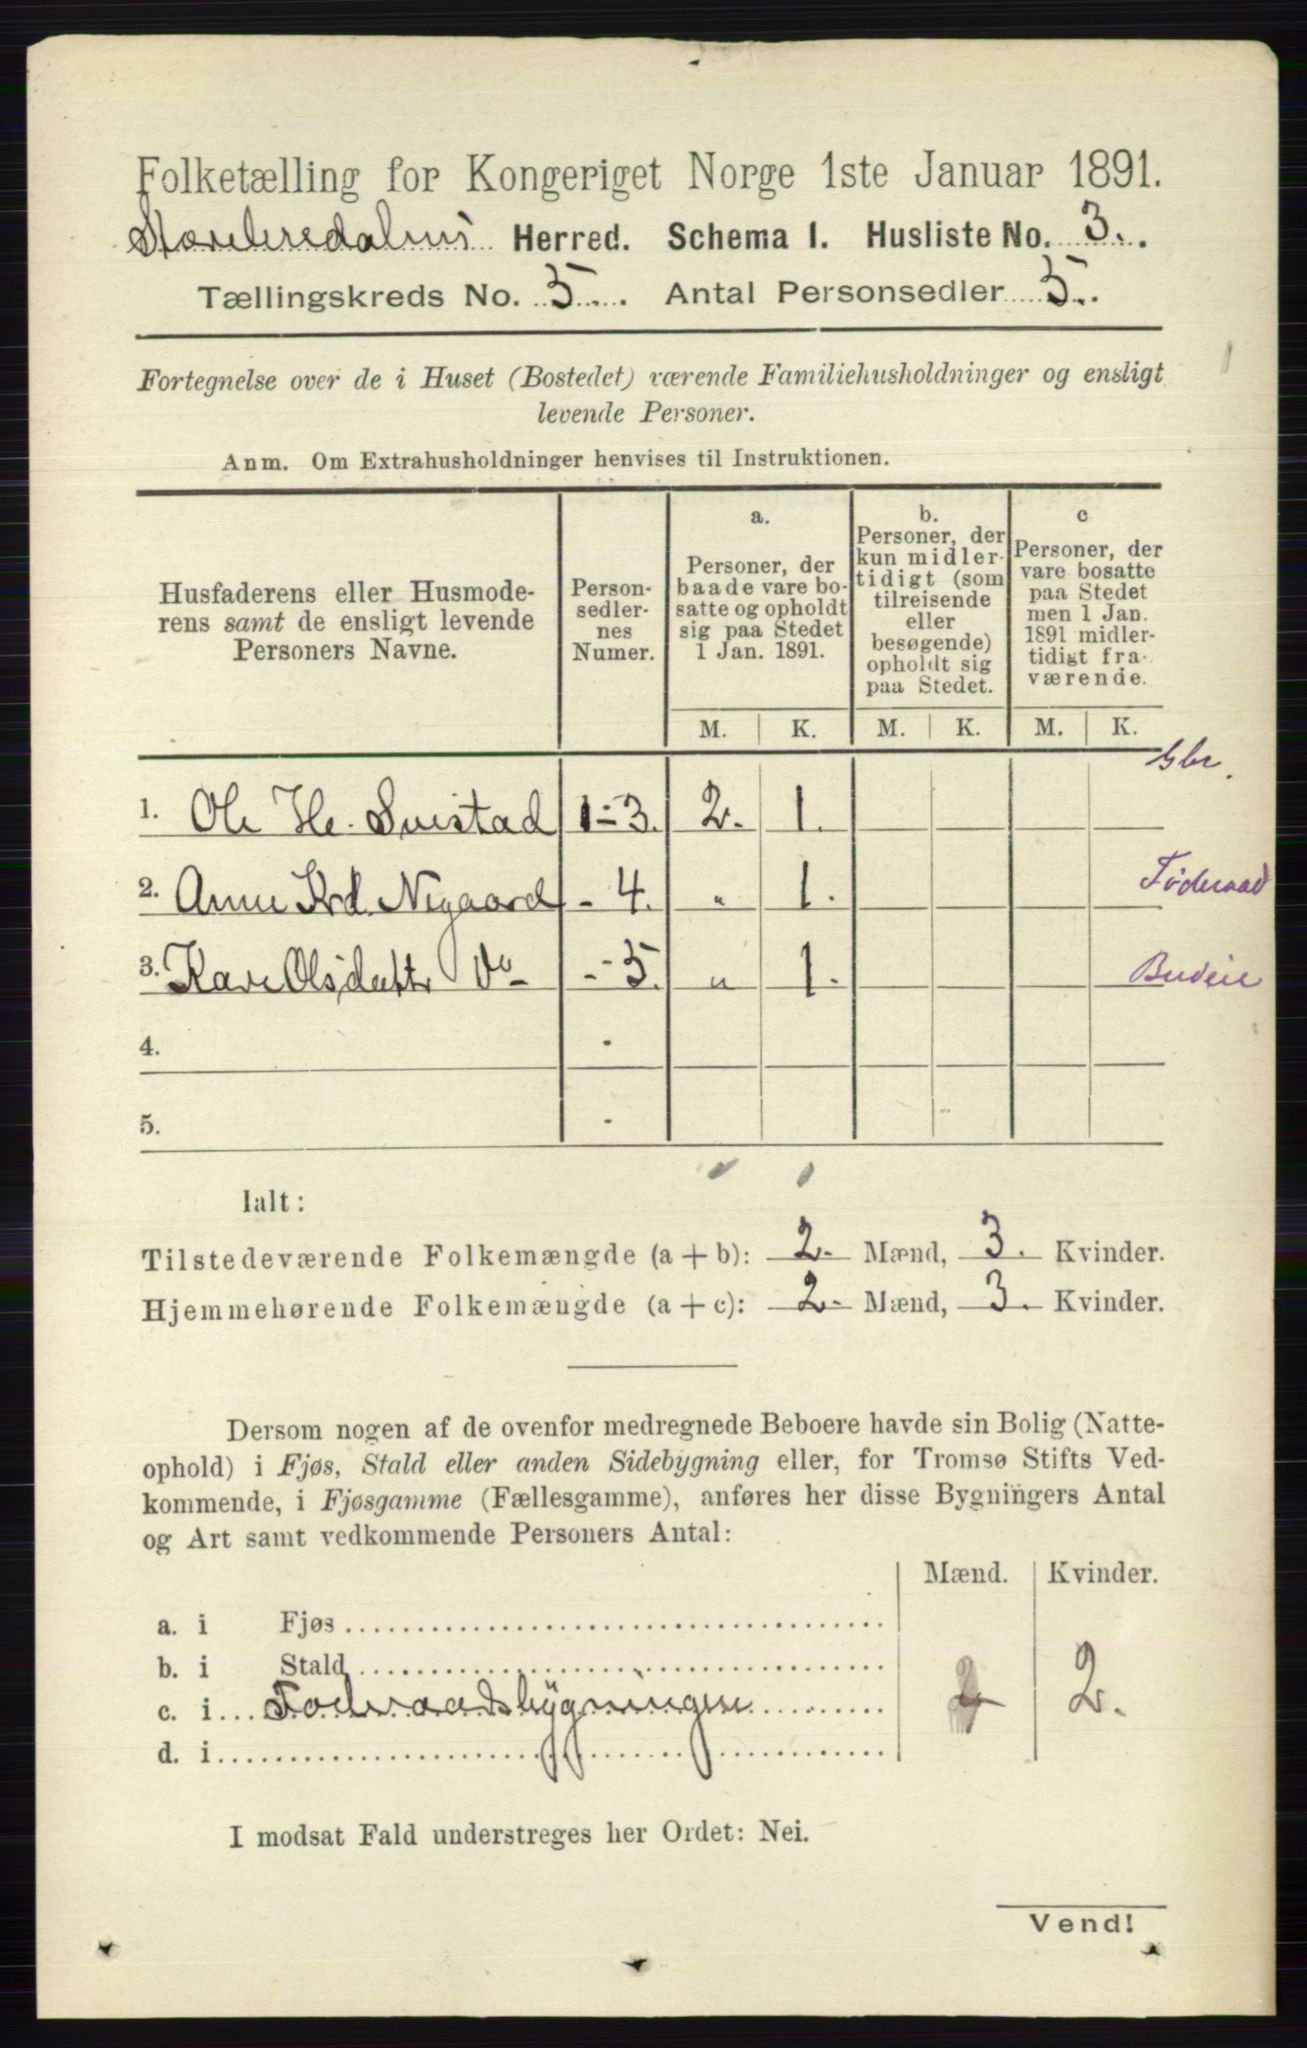 Folketælling for Kongeriget Norge 1ste Januar 1891.
Storelvedalens Herred. Schema I. Husliste No. 3.
Tællingskreds No. 5. Antal Personsedler 5.
Fortegnelse over de i Huset (Bostedet) værende Familiehusholdninger og ensligt
levende Personer.
Anm. Om Extrahusholdninger henvises til Instruktionen.
Husfaderens eller Husmode-
rens samt de ensligt levende
Personers Navne.
Person-
sedler-
nes
Numer.
a.
Personer, der
baade vare bo-
satte og opholdt
sig paa Stedet
1 Jan. 1891.
b.
Personer, der
kun midler-
tidigt (som
tilreisende
eller
besøgende)
opholdt sig
paa Stedet.
c
Personer, der
vare bosatte
paa Stedet
men 1 Jan.
1891 midler-
tidigt fra-
værende.
M. K. M. K. M. K.
Gbr.
1. Ole He. Suistad 1-3. 2. 1.
2. Anne Krd. Nygaard - 4. " 1. Föderaad
3. Kari Olsdattr Do - 5. " 1. Budeie
4.
5.
Ialt:
Tilstedeværende Folkemængde (a + b): 2. Mænd, 3. Kvinder.
Hjemmehørende Folkemængde (a + c): 2. Mænd, 3. Kvinder.
Dersom nogen af de ovenfor medregnede Beboere havde sin Bolig (Natte-
ophold) i Fjøs, Stald eller anden Sidebygning eller, for Tromsø Stifts Ved-
kommende, i Fjøsgamme (Fællesgamme), anføres her disse Bygningers Antal
og Art samt vedkommende Personers Antal:
Mænd. Kvinder.
a. i Fjøs
b. i Stald
c. i Foderaadsbygningen 2 2.
d. i
I modsat Fald understreges her Ordet: Nei.
Vend!